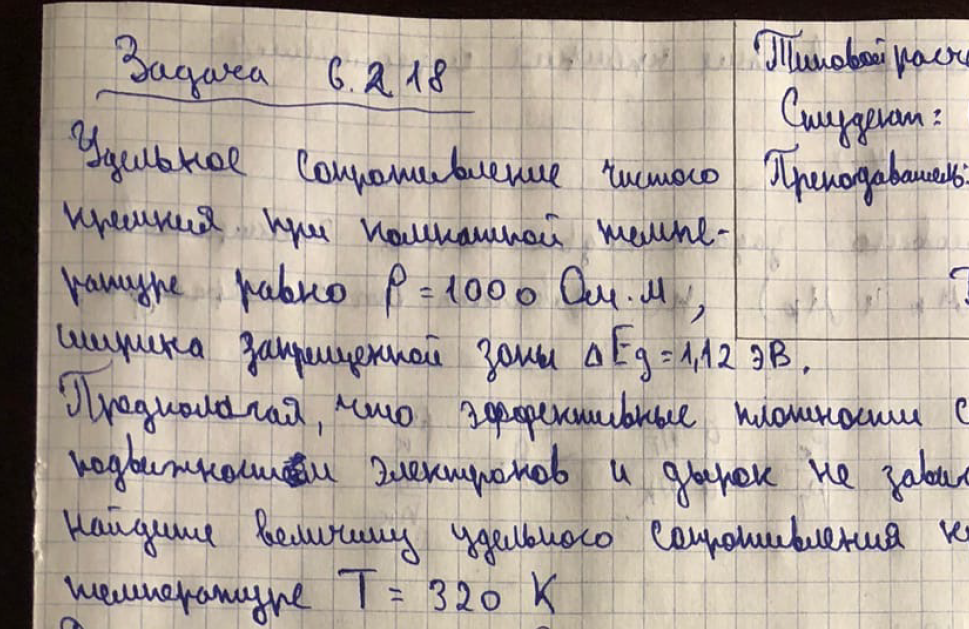 Задача 6.2.18
Типовой расч
Студент:
Преподаватель:
Удельное сопротивление чистого
кремния при комнатной темпе-
ратуре равно ρ = 1000 Ом·м,
ширина запрещенной зоны ΔEg = 1,12 эВ.
Предполагая, что эффективные плотности с
подвижности электронов и дырок не завис
найдите величину удельного сопротивления к
температуре T = 320 K